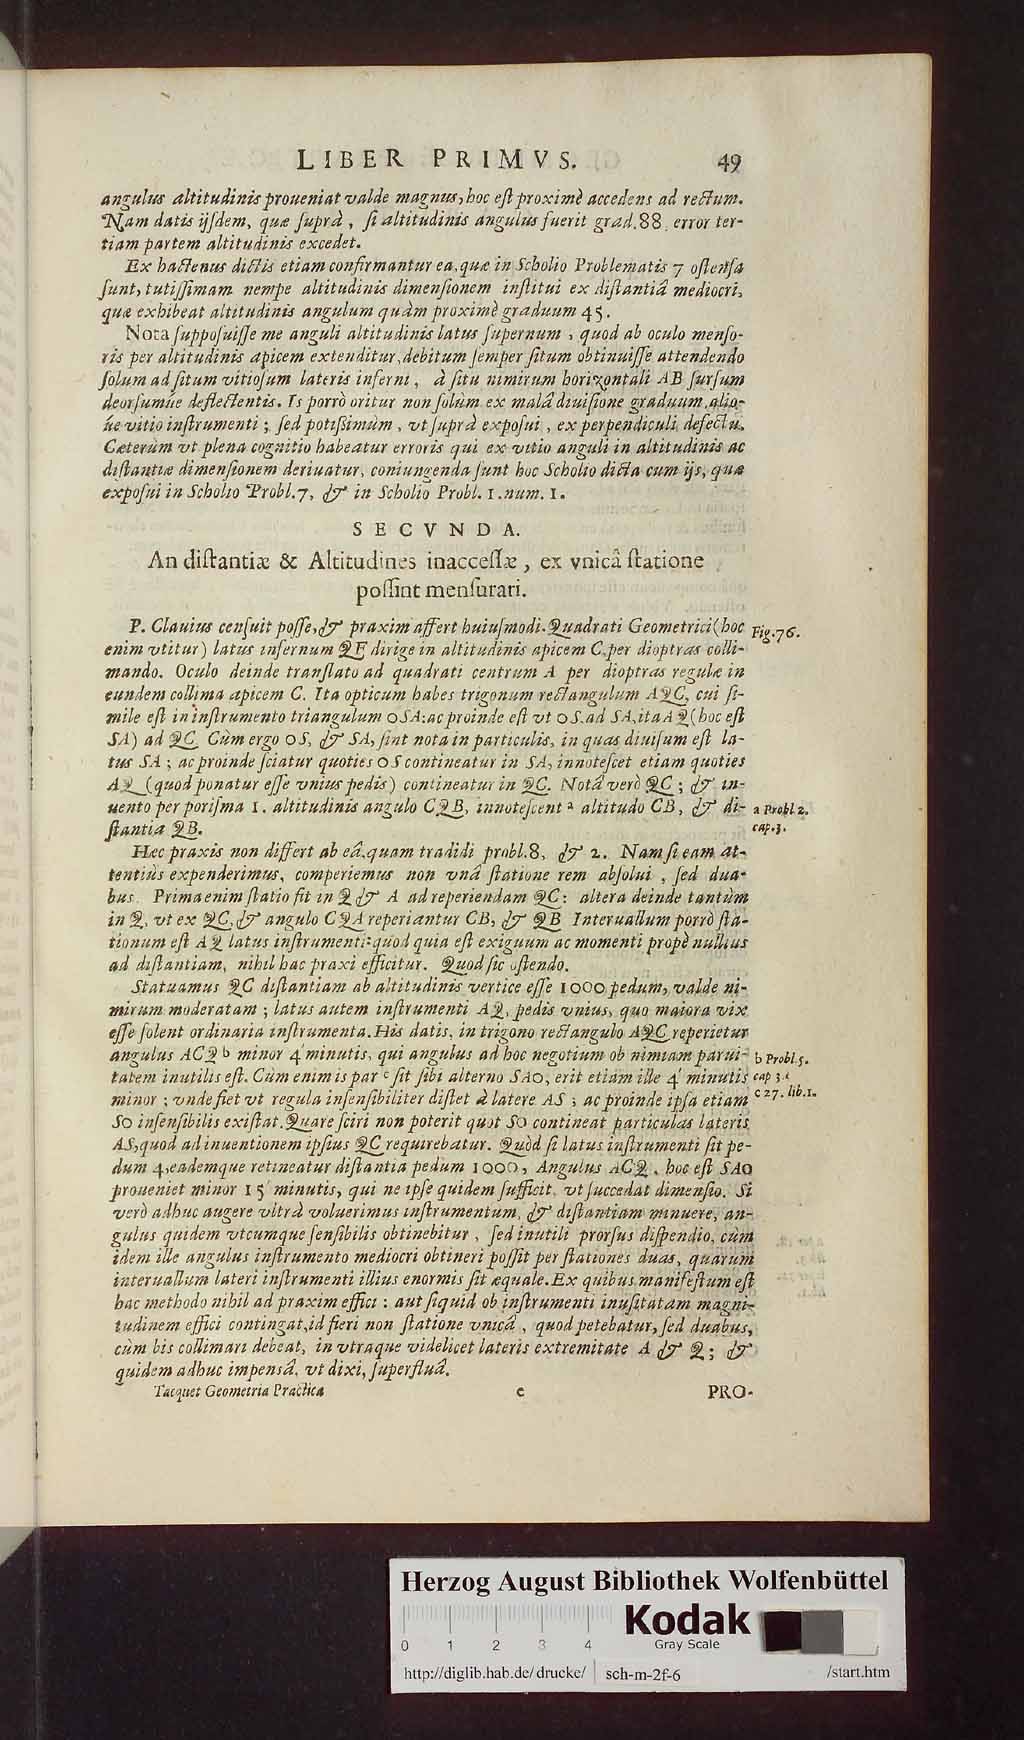 LIBER PRIMVS. 49
angulus altitudinis proueniat valde magnus, hoc eſt proximè accedens ad rectum.
Nam datis ijſdem, quæ ſuprà, ſi altitudinis angulus fuerit grad. 88. error ter-
tiam partem altitudinis excedet.
Ex hactenus dictis etiam confirmantur ea, quæ in Scholio Problematis 7 oſtenſa
ſunt, tutiſſimam nempe altitudinis dimenſionem inſtitui ex diſtantiâ mediocri,
quæ exhibeat altitudinis angulum quàm proximè graduum 45.
Nota ſuppoſuiſſe me anguli altitudinis latus ſupernum, quod ab oculo menſo-
ris per altitudinis apicem extenditur, debitum ſemper ſitum obtinuiſſe, attendendo
ſolum ad ſitum vitioſum lateris inferni, à ſitu nimirum horizontali AB ſurſum
deorſumúe deflectentis. Is porrò oritur non ſolùm ex malâ diuiſione graduum, alio-
úe vitio inſtrumenti; ſed potiſſimùm, vt ſuprà expoſui, ex perpendiculi defectu.
Cæterùm vt plena cognitio habeatur erroris qui ex vitio anguli in altitudinis ac
diſtantiæ dimenſionem deriuatur, coniungenda ſunt hoc Scholio dicta cum ijs, quæ
expoſui in Scholio Probl. 7, & in Scholio Probl. 1. num. 1.
SECVNDA.
An diſtantiæ & Altitudines inacceſſæ, ex vnicâ ſtatione
poſſint menſurari.
P. Clauius cenſuit poſſe, & praxim affert huiuſmodi. Quadrati Geometrici (hoc Fig. 76.
enim vtitur) latus infernum QF dirige in altitudinis apicem C, per dioptras colli-
mando. Oculo deinde tranſlato ad quadrati centrum A per dioptras regulæ in
eundem collima apicem C. Ita opticum habes trigonum rectangulum AQC, cui ſi-
mile eſt in inſtrumento triangulum OSA: ac proinde eſt vt OS. ad SA, ita AQ (hoc eſt
SA) ad QC. Cùm ergo OS, & SA, ſint nota in particulis, in quas diuiſum eſt la-
tus SA; ac proinde ſciatur quoties OS contineatur in SA, innoteſcet etiam quoties
AQ (quod ponatur eſſe vnius pedis) contineatur in QC. Notâ verò QC; & in-
uento per poriſma 1. altitudinis angulo CQB, innoteſcent a altitudo CB, & di- a Probl. 2.
ſtantia QB. cap. 3.
Hæc praxis non differt ab eâ, quam tradidi probl. 8, & 2. Nam ſi eam at-
tentiùs expenderimus, comperiemus non vnâ ſtatione rem abſolui, ſed dua-
bus. Prima enim ſtatio fit in Q & A ad reperiendam QC: altera deinde tantùm
in Q, vt ex QC, & angulo CQA reperiantur CB, & QB. Interuallum porrò ſta-
tionum eſt AQ latus inſtrumenti: quod quia eſt exiguum ac momenti propè nullius
ad diſtantiam, nihil hac praxi efficitur. Quod ſic oſtendo.
Statuamus QC diſtantiam ab altitudinis vertice eſſe 1000 pedum, valde ni-
mirum moderatam; latus autem inſtrumenti AQ, pedis vnius, quo maiora vix
eſſe ſolent ordinaria inſtrumenta. His datis, in trigono rectangulo AQC reperietur
angulus ACQ b minor 4' minutis, qui angulus ad hoc negotium ob nimiam parui- b Probl. 5.
tatem inutilis eſt. Cùm enim is par c ſit ſibi alterno SAO, erit etiam ille 4' minutis cap 3.
minor; vnde fiet vt regula inſenſibiliter diſtet à latere AS; ac proinde ipſa etiam c 27. lib. 1.
SO inſenſibilis exiſtat. Quare ſciri non poterit quot SO contineat particulas lateris
AS, quod ad inuentionem ipſius QC requirebatur. Quòd ſi latus inſtrumenti ſit pe-
dum 4, eademque retineatur diſtantia pedum 1000, Angulus ACQ, hoc eſt SAO
proueniet minor 15' minutis, qui ne ipſe quidem ſufficit, vt ſuccedat dimenſio. Si
verò adhuc augere vltrà voluerimus inſtrumentum, & diſtantiam minuere, an-
gulus quidem vtcumque ſenſibilis obtinebitur, ſed inutili prorſus diſpendio, cùm
idem ille angulus inſtrumento mediocri obtineri poſſit per ſtationes duas, quarum
interuallum lateri inſtrumenti illius enormis ſit æquale. Ex quibus manifeſtum eſt
hac methodo nihil ad praxim effici: aut ſiquid ob inſtrumenti inuſitatam magni-
tudinem effici contingat, id fieri non ſtatione vnicâ, quod petebatur, ſed duabus,
cùm bis collimari debeat, in vtraque videlicet lateris extremitate A & Q; &
quidem adhuc impensâ, vt dixi, ſuperfluâ.
Tacquet Geometria Practica e PRO-
Herzog August Bibliothek Wolfenbüttel
Kodak
Gray Scale
0 1 2 3 4
http://diglib.hab.de/drucke/ sch-m-2f-6 /start.htm